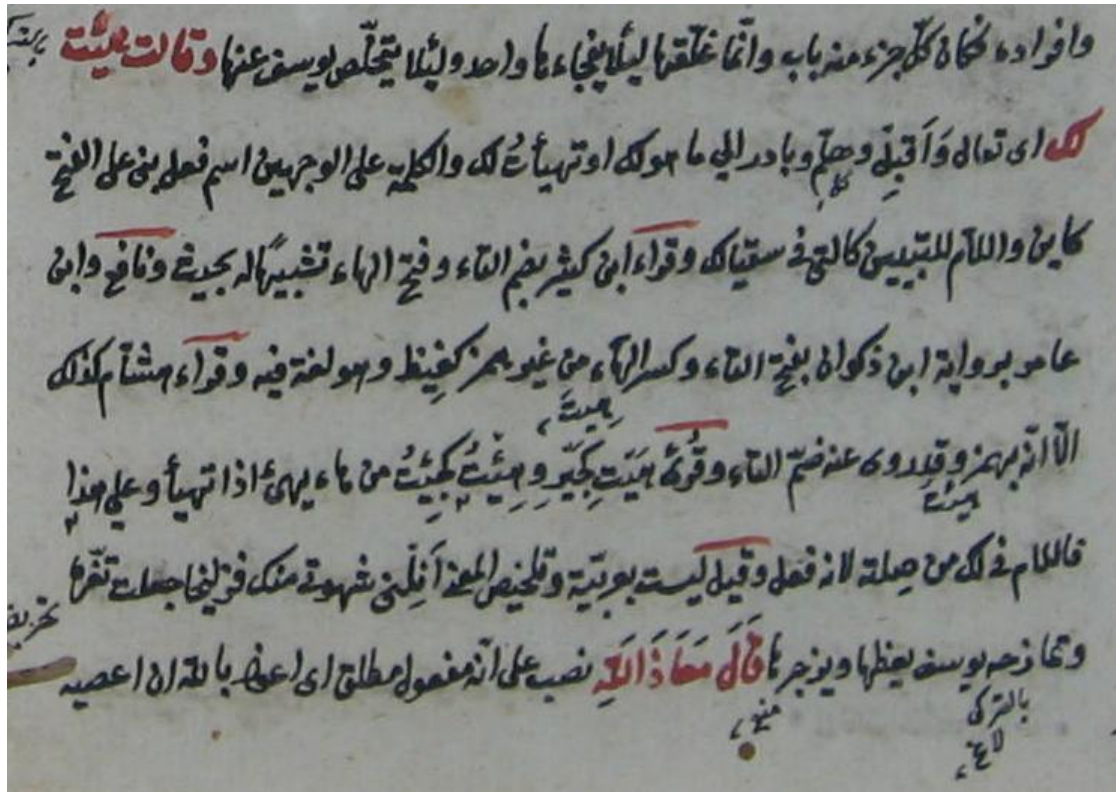 وافراده فكان كلّ جزء منه باب وانّما غلّقها ليئلا يفجاءها واحد ولئلا يتخلّص يوسف عنها وقالت هيت
لك اى تعال وَاَقبِل وهلمّ وبادر الي ما هو لك او تهيأتُ لك والكلمة على الوجهين اسم فعل بنى على الفتح
كاين واللام للتبيين كالتى فى سقيا لك وقراء ابن كثير بضم التاء وفتح الهاء تشبيهًا له بحيث ونافع وابن
عامر برواية ابن ذكوان بفتح التاء وكسر الهاء من غير همز كغيظ وهو لغة فيه وقراء هشام كذلك
هِيتَ
الّا انّه يهمز وقد روى عنه ضمّ التاء وقُرِئَ هَيَتِ كَجَيّرِ وهِئْتُ كَجِئتُ من هاء يهئ اذا تهيأ وعلى هذا
هيئت
فاللام فى لك من صلته لانه فعل وقيل ليست بعربيّة وتلخيص المعنى اَنِلْنى شهوتى منك فزليخا جعلت تغرّه
وتمازحه يوسف يعظها ويزجرها قَالَ مَعَاذَ اللّٰهِ نصب على انّه مفعول مطلق اى اعوذ بالله ان اعصيه
بالتركى